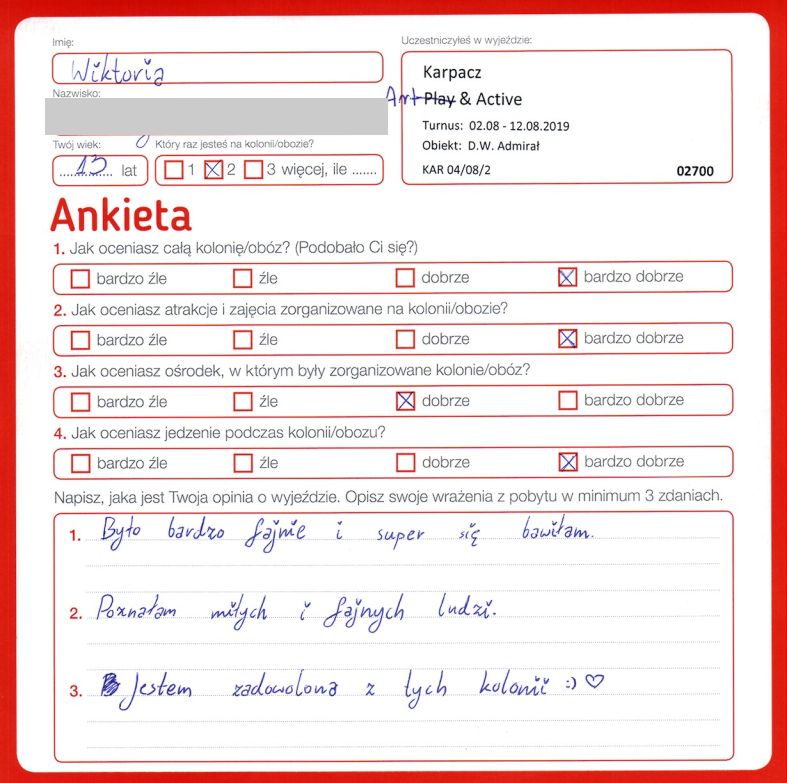 Imię:
Uczestniczyłeś w wyjeździe:
Wiktoria
Karpacz
Nazwisko:
Art Play & Active
Turnus: 02.08 - 12.08.2019
Twój wiek:
Który raz jesteś na kolonii/obozie?
Obiekt: D.W. Admirał
13 lat
1 2 3 więcej, ile .......
KAR 04/08/2
02700
Ankieta
1. Jak oceniasz całą kolonię/obóz? (Podobało Ci się?)
bardzo źle źle dobrze bardzo dobrze
2. Jak oceniasz atrakcje i zajęcia zorganizowane na kolonii/obozie?
bardzo źle źle dobrze bardzo dobrze
3. Jak oceniasz ośrodek, w którym były zorganizowane kolonie/obóz?
bardzo źle źle dobrze bardzo dobrze
4. Jak oceniasz jedzenie podczas kolonii/obozu?
bardzo źle źle dobrze bardzo dobrze
Napisz, jaka jest Twoja opinia o wyjeździe. Opisz swoje wrażenia z pobytu w minimum 3 zdaniach.
1. Było bardzo fajnie i super się bawiłam.
2. Poznałam miłych i fajnych ludzi.
3. Jestem zadowolona z tych kolonii :) ♡